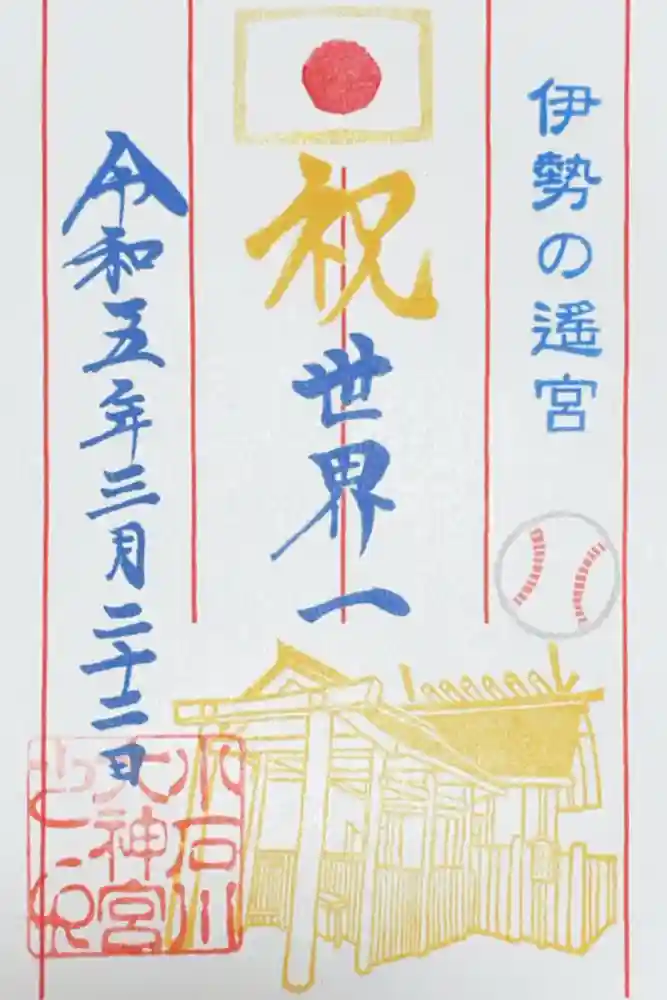 伊勢の遥宮
祝世界一
令和五年三月二十二日
小石川
大神宮